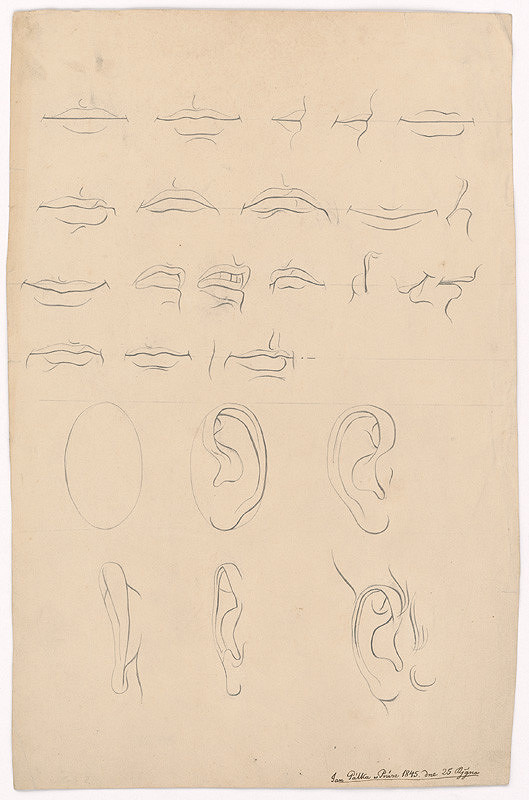 Jan Pálka v Praze 1845. dne 25 Října